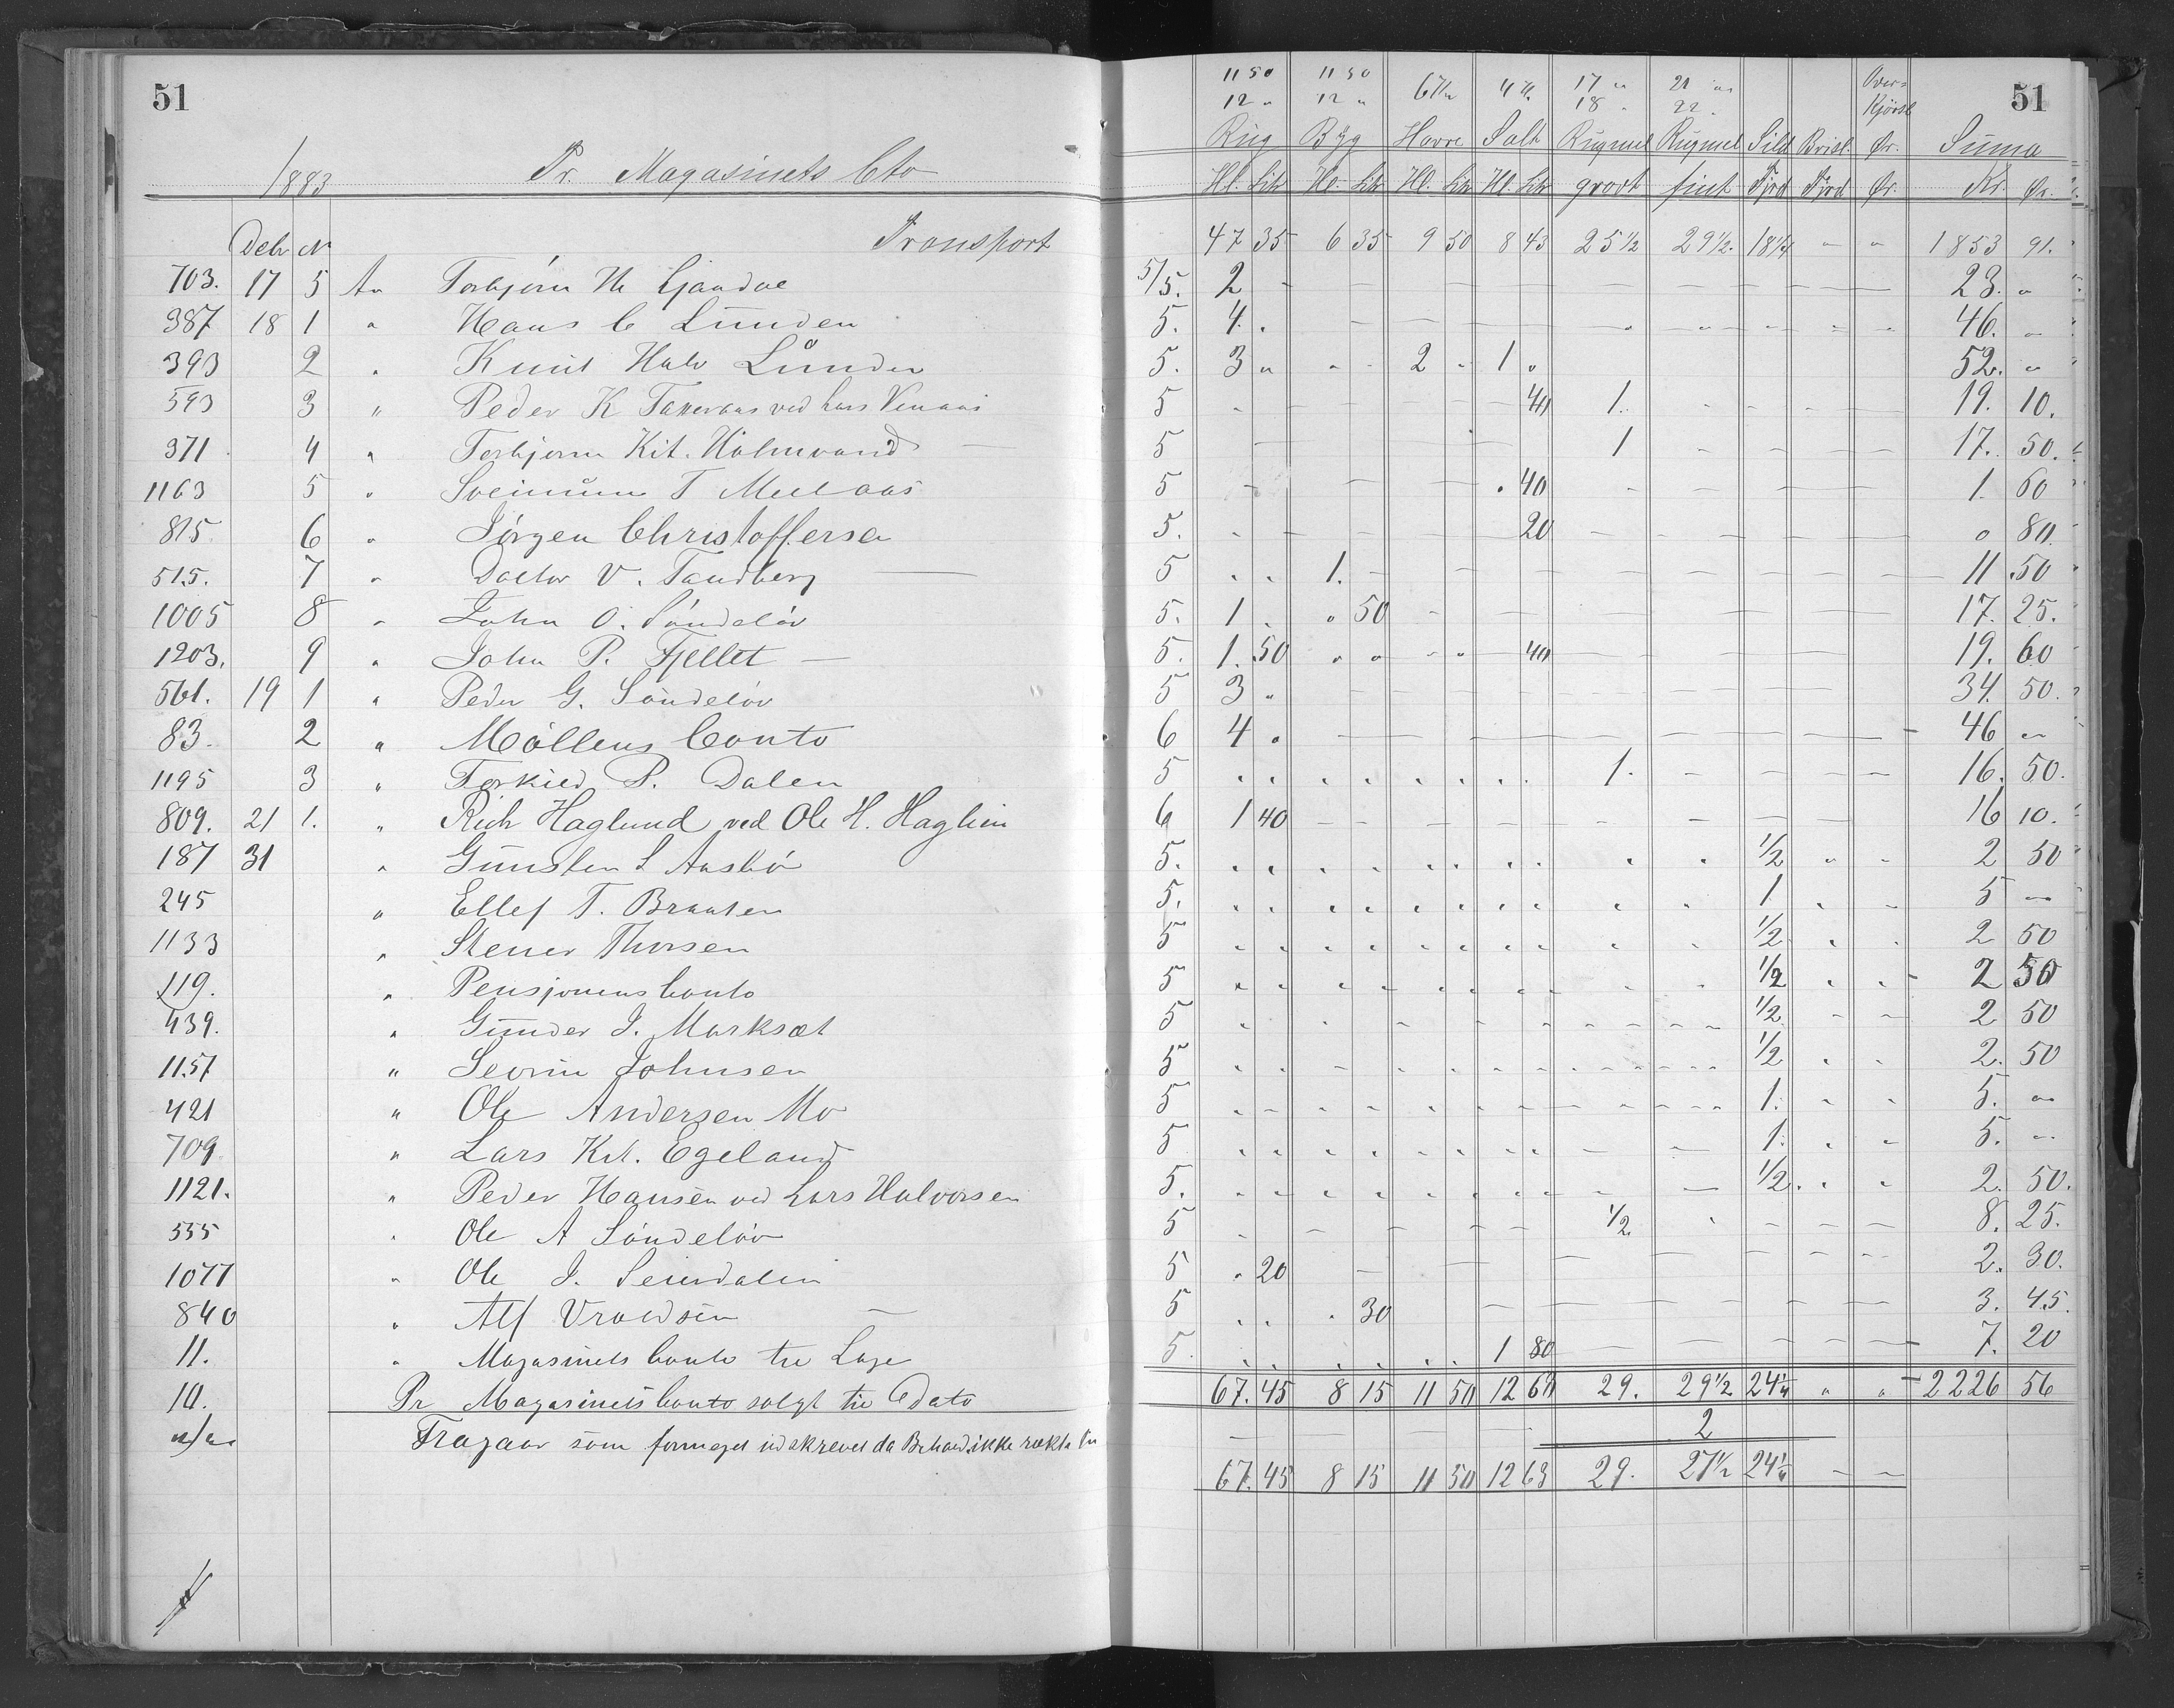 51
1883 Pr. Magasinets Cto
11 50 11 50 6 Kr 4 Kr. 17 " 21 " Over= 51
12 " 12 " 18 " 22 " Kjørsl
Rug Byg Havre Salt Rugmel Rugmel Sild Brisl. Ør. Suma
Hl. Litr Hl. Litr Hl. Litr Hl. Litr grovt fint Fjrd Fjrd Ør. Kr. Ør.
Debr N Transport 47 35 6 35 9 50 8 43 25 1/2 29 1/2 18 1/4 " " 1853 91.
703. 17 5 An Torbjørn 5/5. 2 23. "
387 18 1 " Hans C Lunden 5. 4. 46. "
393 2 " Knut Halv Lunden 5. 3 " 2 " 1 " 52. "
593 3 " Peder K ved Lars 5 40 1. 19. 10.
371 4 " Torbjørn Kit. Holmvand 5 1 17. 50.
1163 5 " T 5 40 1. 60
815 6 " Jörgen Christoffersen 5. 20 " 80.
515. 7 " Doctor V. Tandberg 5 1. 11 50
1005 8 " John O. Söndeløv 5. 1 " 50 17. 25.
1203. 9 " John P. Fjellet 5. 1. 50 40 19. 60
561. 19 1 " Peder G. Söndeløv 5 3 " 34. 50.
83. 2 " Möllens Conto 6 4 " 46 "
1195 3 " P. Dalen 5 1. 16. 50.
809. 21 1. " Rich Haglund ved Ole H. Haglien 6 1 40 16 10.
187 31 " 5. 1/2 2 50
245 " Ellef T. Braaten 5. 1 5 "
1133 " Stener Thorsen 5 1/2 2 50
119. " Pensjonens Conto 5 1/2 2 50
439. " Gunder J. Marksæt 5 1/2 2 50
1157 " Severin Johnsen 5 1/2 2. 50
421 " Ole Andersen Mo 5 1. 5. "
709 " Lars Kit. Egeland 5 1. 5. "
1121. " Peder Hansen ved Lars Halvorsen 5. 1/2. 2. 50.
555 " Ole A Söndeløv 5 1/2 8. 25.
1077 " Ole J. 5 20 2. 30.
840 " Alf Vraldsen 5 30 3. 45.
11. " Magasinets Conto til Lage 5. 1 80 7. 20
10. Pr Magasinets Conto solgt til Dato 67. 45 8 15 11 50 12 63 29. 29 1/2 24 1/4 " " 2226 56
Fragaar som formeget udskrevet da Behold. ikke 2
67. 45 8 15 11 50 12 63 29. 27 1/2 24 1/4